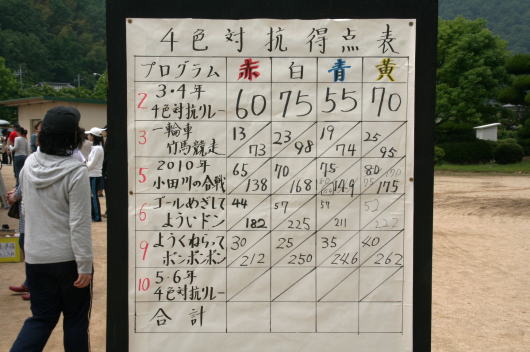 4色対抗得点表
プログラム 赤 白 青 黄
2 3・4年 4色対抗リレー 60 75 55 70
3 一輪車 竹馬競走 13 73 23 98 19 74 25 95
5 2010年 小田川の合戦 65 138 70 168 75 149 80 175
6 ゴールめざして よういドン 44 182 57 225 211 52
9 ようくねらって ポンポンポン 30 212 25 250 35 246 40 262
10 5・6年 4色対抗リレー
合計